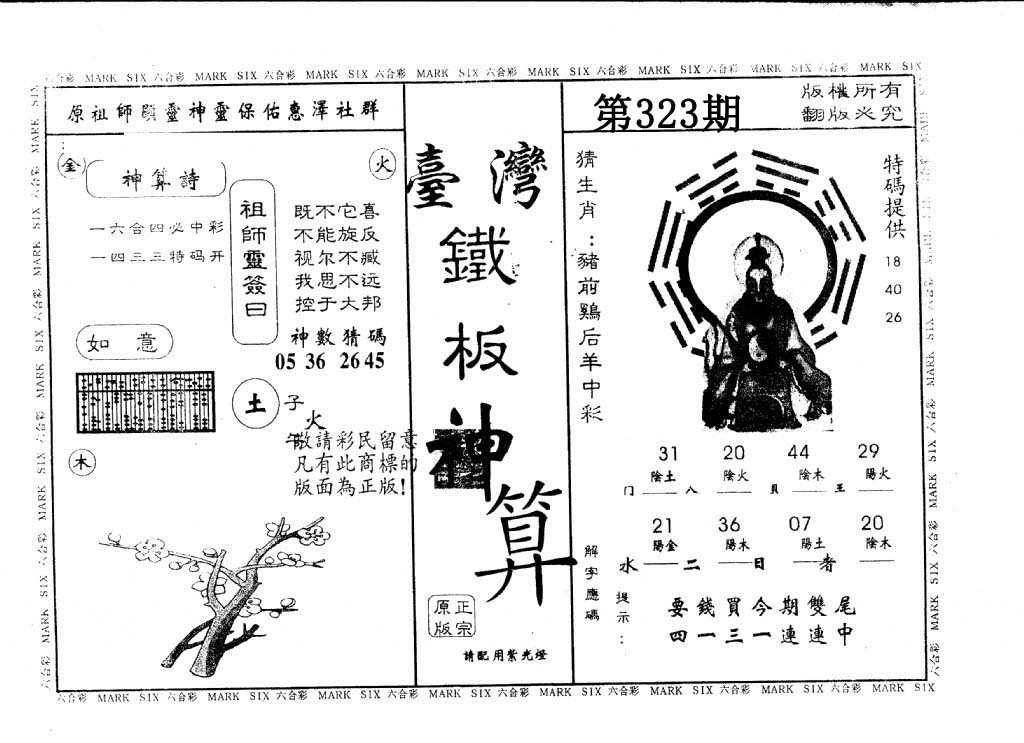 MARK SIX 六合彩 MARK SIX 六合彩 MARK SIX 六合彩 MARK SIX 六合彩 MARK SIX 六合彩 MARK SIX 六合彩 MARK SIX 六合彩 MARK SIX 六合彩
原祖師顯靈神靈保佑惠澤社群
金
火
神算詩
一六合四必中彩
一四三三特码开
祖師靈簽曰
既不它喜
不能旋反
视尔不臧
我思不远
控于大邦
神數猜碼
05 36 26 45
如意
土
子
火
午
木
敬請彩民留意
凡有此商標的
版面為正版!
臺灣
鐵
板
神
算
正宗
原版
請配用紫光燈
第323期
版權所有
翻版必究
猜生肖:豬前鷄后羊中彩
特碼提供
18
40
26
31 20 44 29
陰土 陰火 陰木 陽火
门 八 貝 王
21 36 07 20
陽金 陽木 陽土 陰木
水 二 日 者
解字應碼
提示:
要錢買今期雙尾
四一三一連連中
MARK SIX 六合彩 MARK SIX 六合彩 MARK SIX 六合彩 MARK SIX 六合彩 MARK SIX 六合彩 MARK SIX 六合彩 MARK SIX 六合彩 MARK SIX